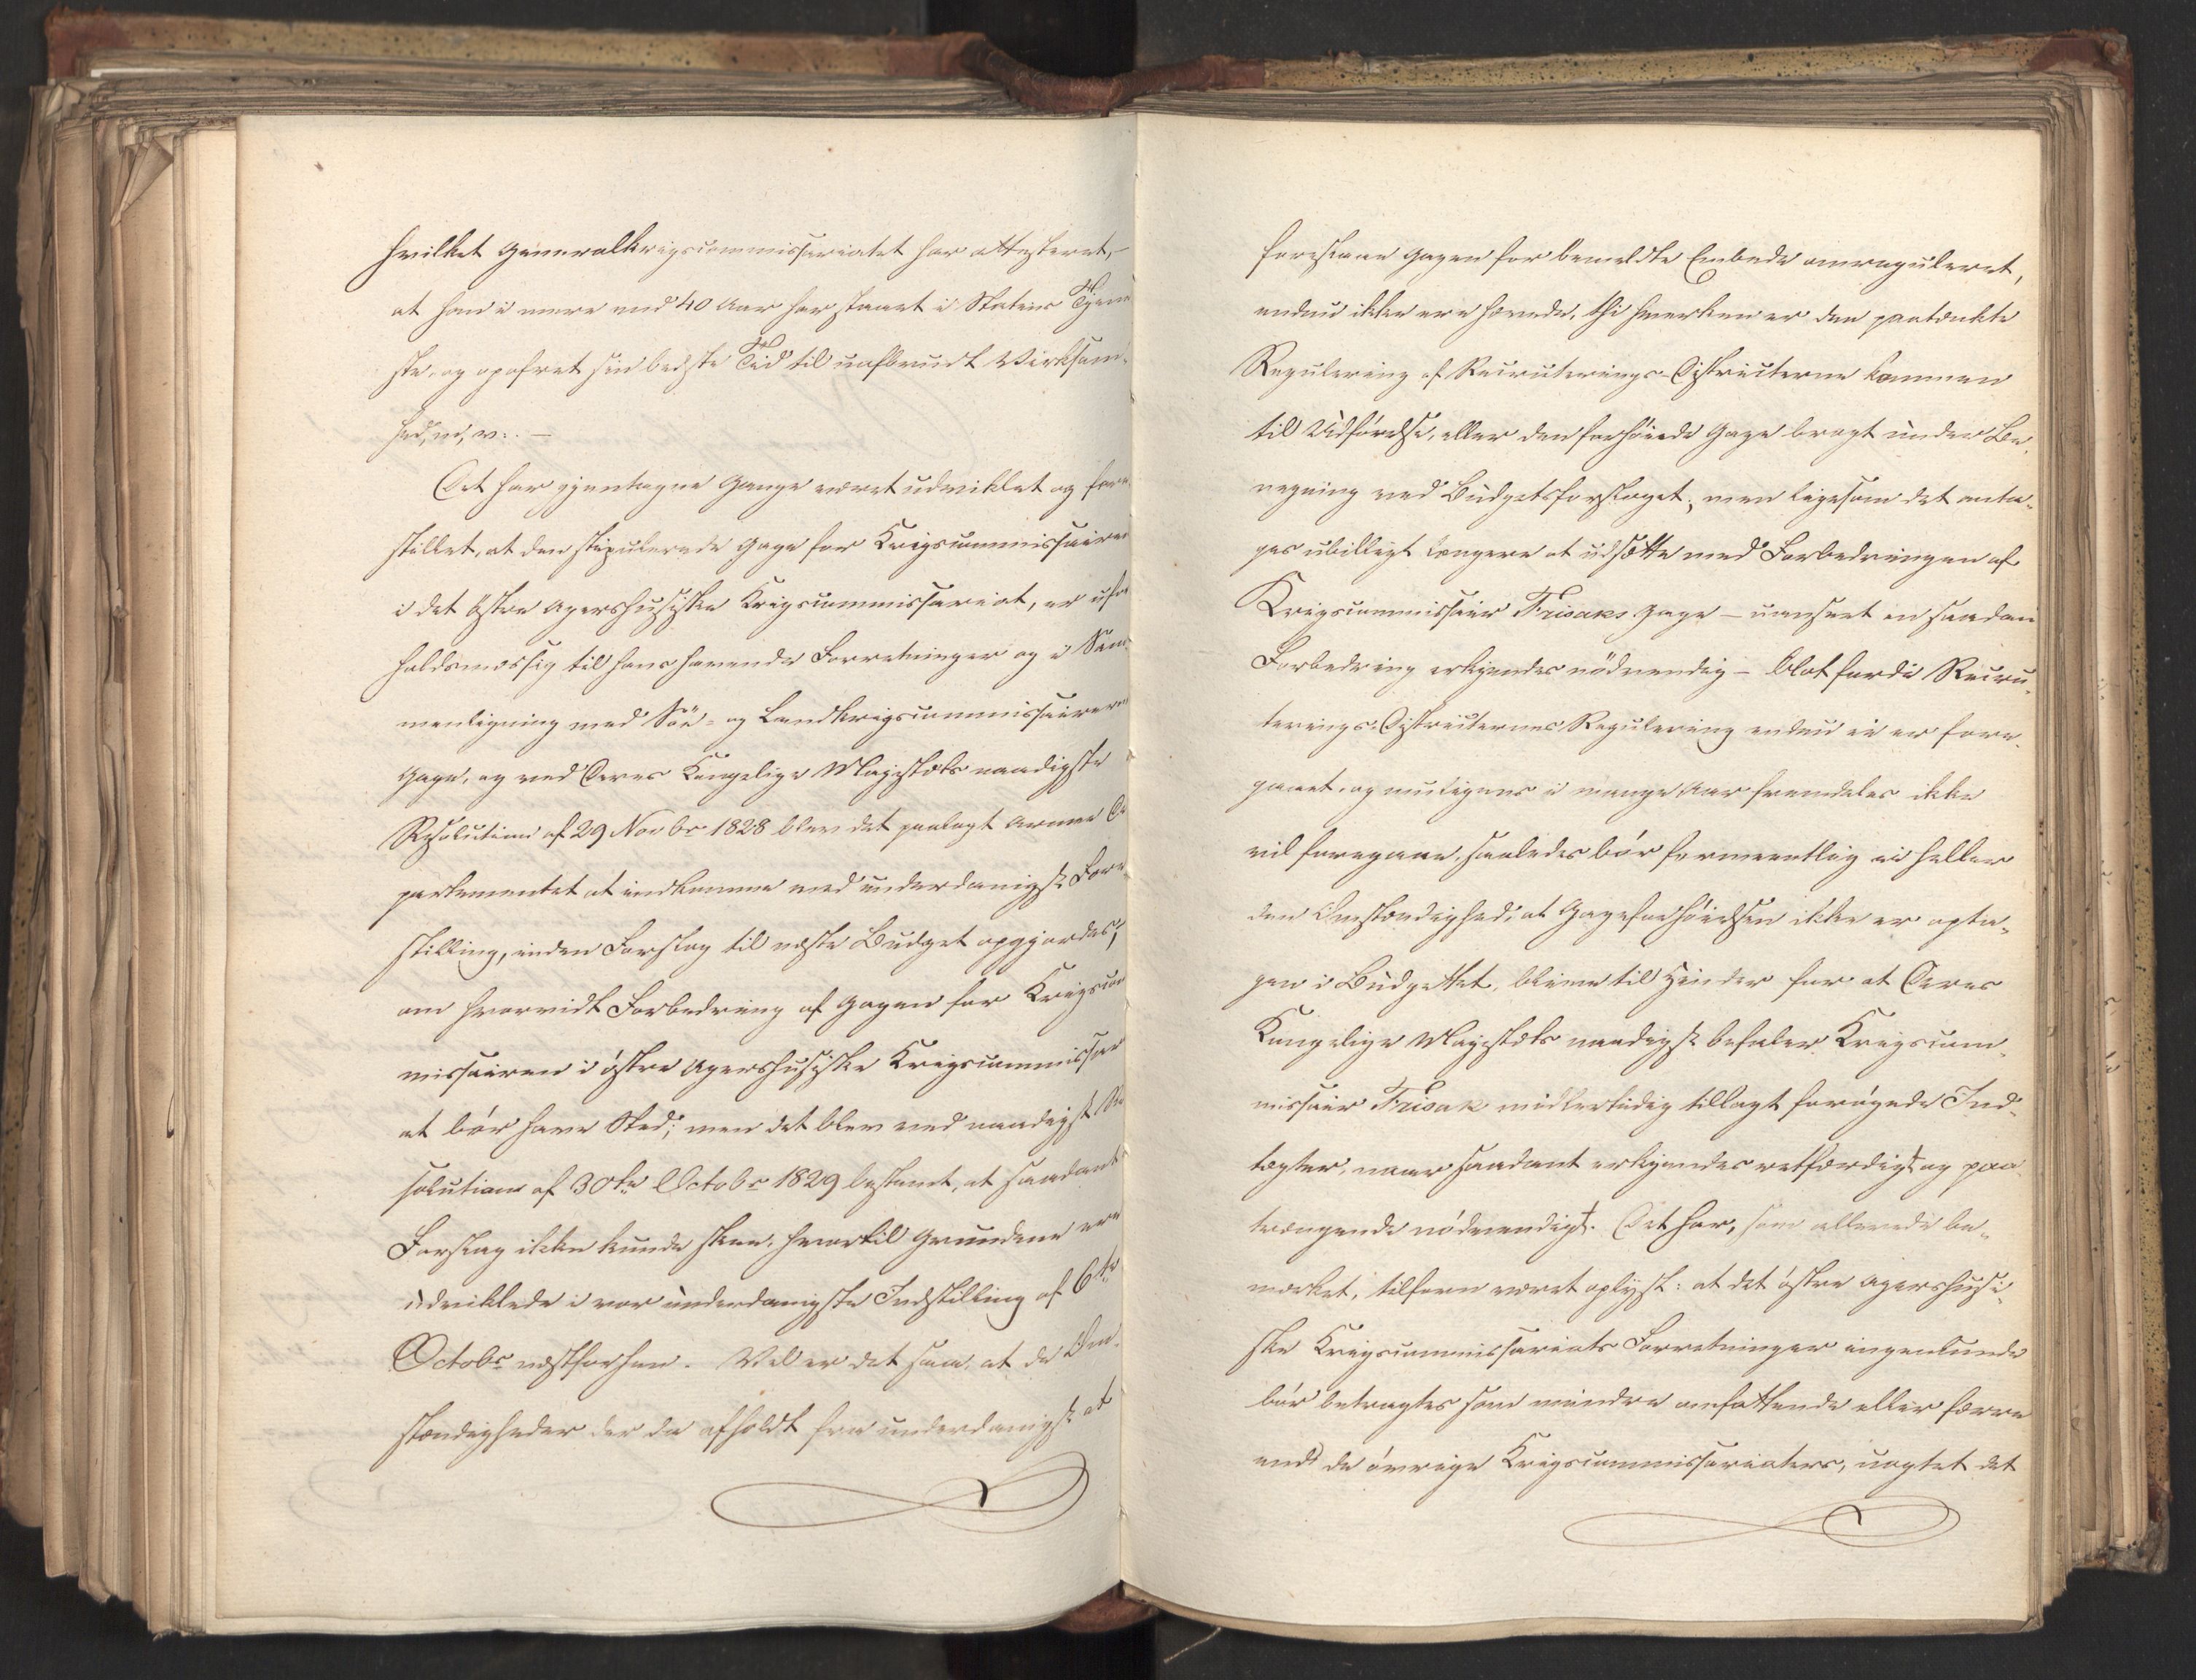 hvilket Generalkrigscommissariatet har attesteret, –
at han i mere end 40 Aar har staaet i Statens Tjene
ste, og opofret sin bedste Tid til uafbrudt Virksom-
hed, m, v:. –
Det har gjentagne Gange været udviklet og fore
stillet, at den stipulerede Gage for Krigscommissairen
i det Østre Agershusiske Krigscommissariat, er ufor
holdsmæssig til hans havende Forretninger og i Sam
menligning med Søe- og Landkrigscommissairernes
Gage, og ved Deres Kongelige Majestæts naadigste
Resolution af 29 Novbr 1828 blev det paalagt Armee De
partementet at indkomme med underdanigst Fore
stilling, inden Forslag til næste Budget opgjordes,
om hvorvidt Forbedring af Gagen for Krigscom
missairen i østre Agershusiske Krigscommissari
at bør have Sted; men det blev ved naadigst Re
solution af 30te Octobr 1829 bestemt, at saadant
Forslag ikke kunde skee, hvortil Grundene ere
udviklede i vor underdanigste Indstilling af 6te
Octobr næstforhen. Vel er det saa, at de Om-
stændigheder der da afholdt fra underdanigst at
foreslaae Gagen for bemeldte Embede omreguleret,
endnu ikke ere hævede, thi hverken er den paatænkte
Regulering af Recruterings-Districterne kommen
til Udførelse, eller den forhøiede Gage bragt under Be-
regning ved Budgetsforslaget; men ligesom det anta-
ges ubilligt længere at udsætte med Forbedringen af
Krigscommissair Frisaks Gage – uanseet en saadan
Forbedring erkjendes nødvendig – blot fordi Recru-
terings-Districternes Regulering endnu ei er fore-
gaaet, og muligens i mange Aar fremdeles ikke
vil foregaae, saaledes bør formeentlig ei heller
den Omstændighed, at Gageforhøielsen ikke er opta-
gen i Budgettet, blive til Hinder for at Deres
Kongelige Majestæts naadigst befaler Krigscom-
missair Frisak midlertidig tillagt forøgede Ind-
tægter, naar saadant erkjendes retfærdigt og paa-
trængende nødvendigt. Det har, som allerede be-
mærket, tilforn været oplyst: at det østre Agershusi-
ske Krigscommissariats Forretninger ingenlunde
bør betragtes som mindre omfattende eller færre
end de øvrige Krigscommissariaters, uagtet det